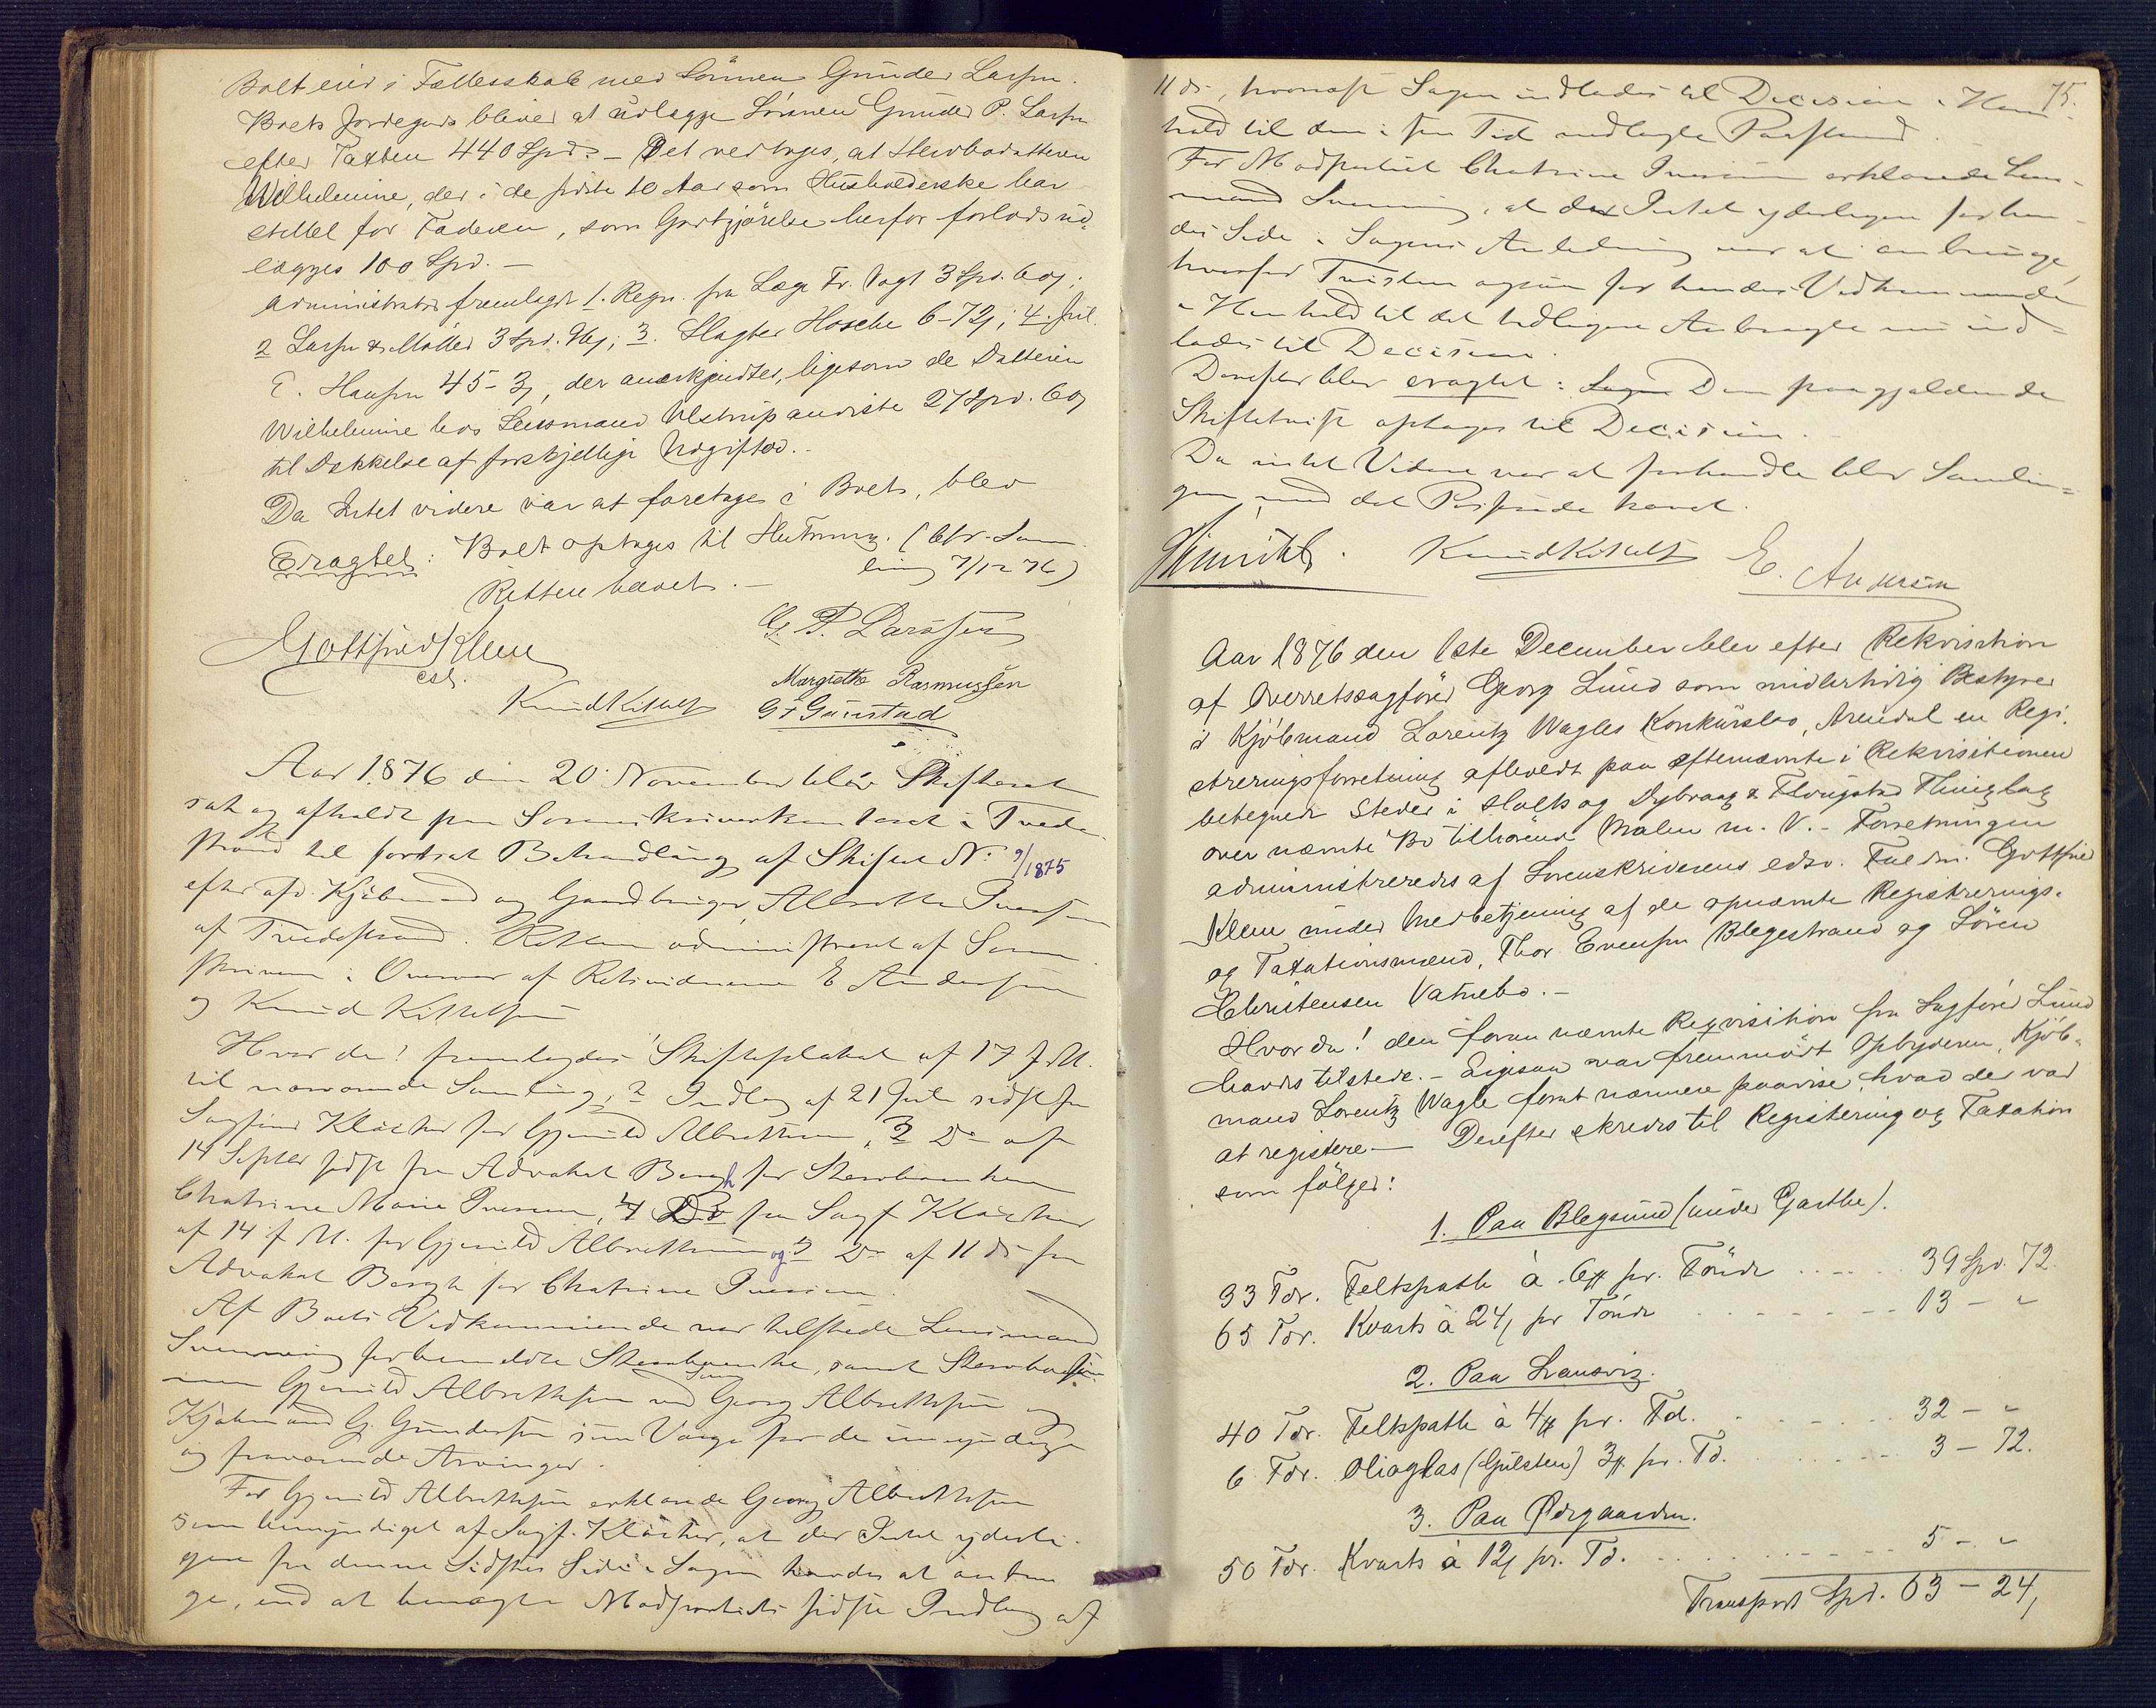 Boet eied i Fællesskab med Sönnen Gunder Larsen.
Boets Jordegods bliver at udlægge Sönnen Gunder P. Larsen
efter Taxten 440 Spd. – Det vedtoges, at Stervbodatteren
Wilhelmine, der i de sidste 10 Aar som Husholderske har
stellet for Faderen, som Godtgjörelse herfor forlods ud-
lægges 100 Spd. –
Administrator fremlagde 1. Regn. fra Læge Fr. Vogt 3 Spd. 60 ;
2 Larsen & Möller 3 Spd. ; 3. Slagter Hosche 6-72 ; 4.
E. Hansen 45-3, der anerkjendtes, ligesom de Datteren
Wilhelmine hos Lensmand Ulstrup anviste 27 Spd. 60
til Dækkelse af forskjellige Udgifter. –
Da Intet videre var at foretage i Boet, blev
Eragtet: Boet optages til Slutning. (blv. Sam
ling 7/12 76)
Retten hævet. –
Gottfried Klem
cst.
G. P. Larssen
Margrethe Rasmussen
Knud Kittels G T Gunstad
Aar 1876 den 20 November blev Skifteret
sat og afholdt paa Sorenskriverkontoret i Tvede-
strand til fortsat Behandling af Skiftet No 9/1875
efter afd. Kjöbmand og Gaardbruger Albreth Iversen
af Tvedestrand. Retten administreret af Soren
skriveren i Overvær af Retsvidnerne E Andersen
og Knud Kittelsen
Hvor da! fremlagdes 1 Skifteplakat af 17 f. M.
til nærværende Samling, 2 Indlæg af 21 Juli sidst fra
Sagförer Klöcker for Gjeruld Albretsen, 3 Do af
14 Septbr sidst fra Advokat Bergh for Stervboenken
Chatrine Marie Iversen, 4 Do fra Sagf Klöcker
af 14 f M. for Gjeruld Albretsen og 5 Do af 11 ds fra
Advokat Bergh for Chatrine Iversen.
Af Boets Vedkommende var tilstede Lensmand
Svenning for bemeldte Stervboenke, samt Stervbosön
nen Gjeruld Albrethsen ved Sön Georg Albrethsen og
Kjöbmand G. Gundersen som Værge for de umyndige
og fraværende Arvinger.
For Gjeruld Albrethsen erklærede Georg Albrethsen
som bemyndiget af Sagf. Klöcker, at der Intet yderli-
gere fra denne Sidstes Side i Sagen havdes at anbrin
ge, end at benægte Modpartiets sidste Indlæg af
75.
11 ds, hvorefter Sagen indlades til Decision i Hen
hold til den i sin Tid nedlagte Paastand.
For Modpartiet Chatrine Iversen erklærede Lens-
mand Svenning, at der Intet yderligere fra hen-
des Side i Sagens Anledning var at anbringe,
hvorfor Tvisten ogsaa for hendes Vedkommende
i Henhold til det tidligere Anbragte nu ind-
lades til Decision.
Derefter blev eragtet: Sagen Den paagjældende
Skiftetvist optages til Decision.
Da intet Videre var at forhandle blev Samlin-
gen med det Passerede hævet.
Knud Kittels E. Andersen
Aar 1876 den 1ste December blev efter Rekvisition
af Overretssagförer Georg Lund som midlertidig Bestyrer
i Kjöbmand Lorentz Wagles Konkursbo, Arendal en Regi-
streringsforretning afholdt paa eftenævnte i Rekvisitionen
betegnede Steder i Holts og Dybvaag & Flougstad Thinglag
over nævnte Bo tilhörende Malm m. V. – Forretningen
administreredes af Sorenskriverens edsv. Fuldm. Gottfried
Klem under Medbetjening af de opnævnte Registrerings-
og Taxationsmænd, Thor Evensen Blegestrand og Sören
Christensen Vatnebo. –
Hvor da! den foran nævnte Reqvisition fra Sagförer Lund
havdes tilstede. – Ligesaa var fremmödt Opbyderen, Kjöb-
mand Lorentz Wagle forat nærmere paavise hvad der var
at registere. – Derefter skredes til Registering og Taxation
som fölger:
1. Paa Blegsund (under Garthe).
33 Tdr. Feltspath à 6 pr. Tönde . . . . 39 Spd. 72
65 Tdr. Kvarts à 24 pr Tönde . . . . 13 – "
2. Paa Hansvig.
40 Tdr. Feltspath à 4 pr. Td. . . . . 32 – "
6 Tdr. Olioglas (Gulsten) 3 pr. Td. . . . . 3 – 72.
3. Paa Ödegaarden.
50 Tdr. Kvarts à 12 pr. Td. . . . . 5 – "
Transport Spd. 63 – 24